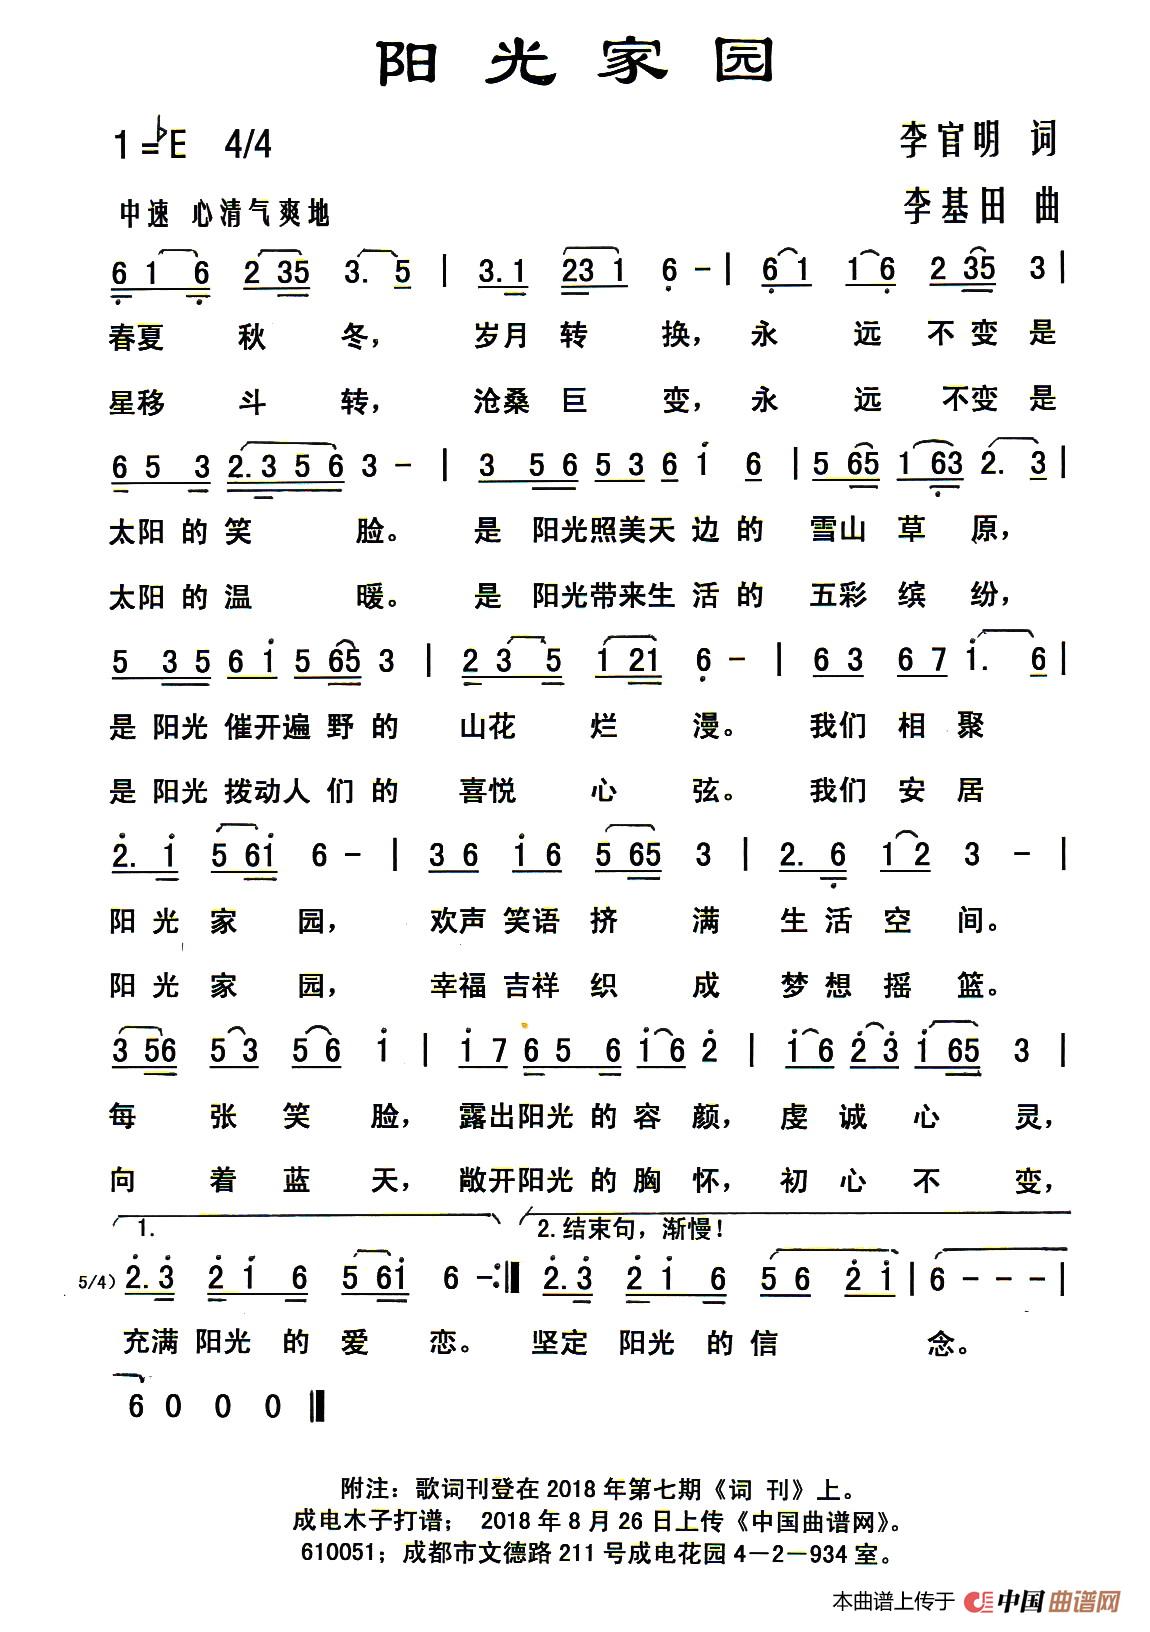 阳光家园
1=♭E 4/4
李官明 词
中速 心清气爽地
李基田 曲
6 1 6 2 35 3. 5 | 3.1 23 1 6 - | 6 1 1 6 2 35 3 |
春夏 秋 冬， 岁月 转 换， 永 远 不 变 是
星移 斗 转， 沧桑 巨 变， 永 远 不变 是
6 5 3 2.3 5 6 3 - | 3 5 6 5 3 6 i 6 | 5 65 1 63 2. 3 |
太阳 的 笑 脸。 是 阳光照美天 边 的 雪山 草 原，
太阳 的 温 暖。 是 阳光带来生 活 的 五彩 缤 纷，
5 3 5 6 i 5 65 3 | 2 3 5 1 21 6 - | 6 3 6 7 i. 6 |
是 阳光 催开遍 野 的 山花 烂 漫。 我们 相 聚
是 阳光 拨动人 们 的 喜悦 心 弦。 我们 安 居
2. i 5 6i 6 - | 3 6 i 6 5 65 3 | 2. 6 1 2 3 - |
阳 光 家 园， 欢声 笑语 挤 满 生 活 空 间。
阳 光 家 园， 幸福 吉祥 织 成 梦 想 摇 篮。
3 56 5 3 5 6 i | i 7 6 5 6 i 6 2 | i 6 2 3 i 65 3 |
每 张 笑 脸， 露出阳光 的 容 颜， 虔 诚 心 灵，
向 着 蓝 天， 敞开阳光 的 胸 怀， 初 心 不 变，
1. 2.结束句，渐慢！
5/4) 2.3 2 i 6 5 6i 6 -:‖ 2.3 2 i 6 5 6 2 i | 6 - - - |
充满 阳光 的 爱 恋。 坚定 阳光 的 信 念。
6 0 0 0 ‖
附注：歌词刊登在 2018 年第七期《词 刊》上。
成电木子打谱； 2018 年 8 月 26 日上传《中国曲谱网》。
610051；成都市文德路 211 号成电花园 4－2－934 室。
本曲谱上传于 中国曲谱网